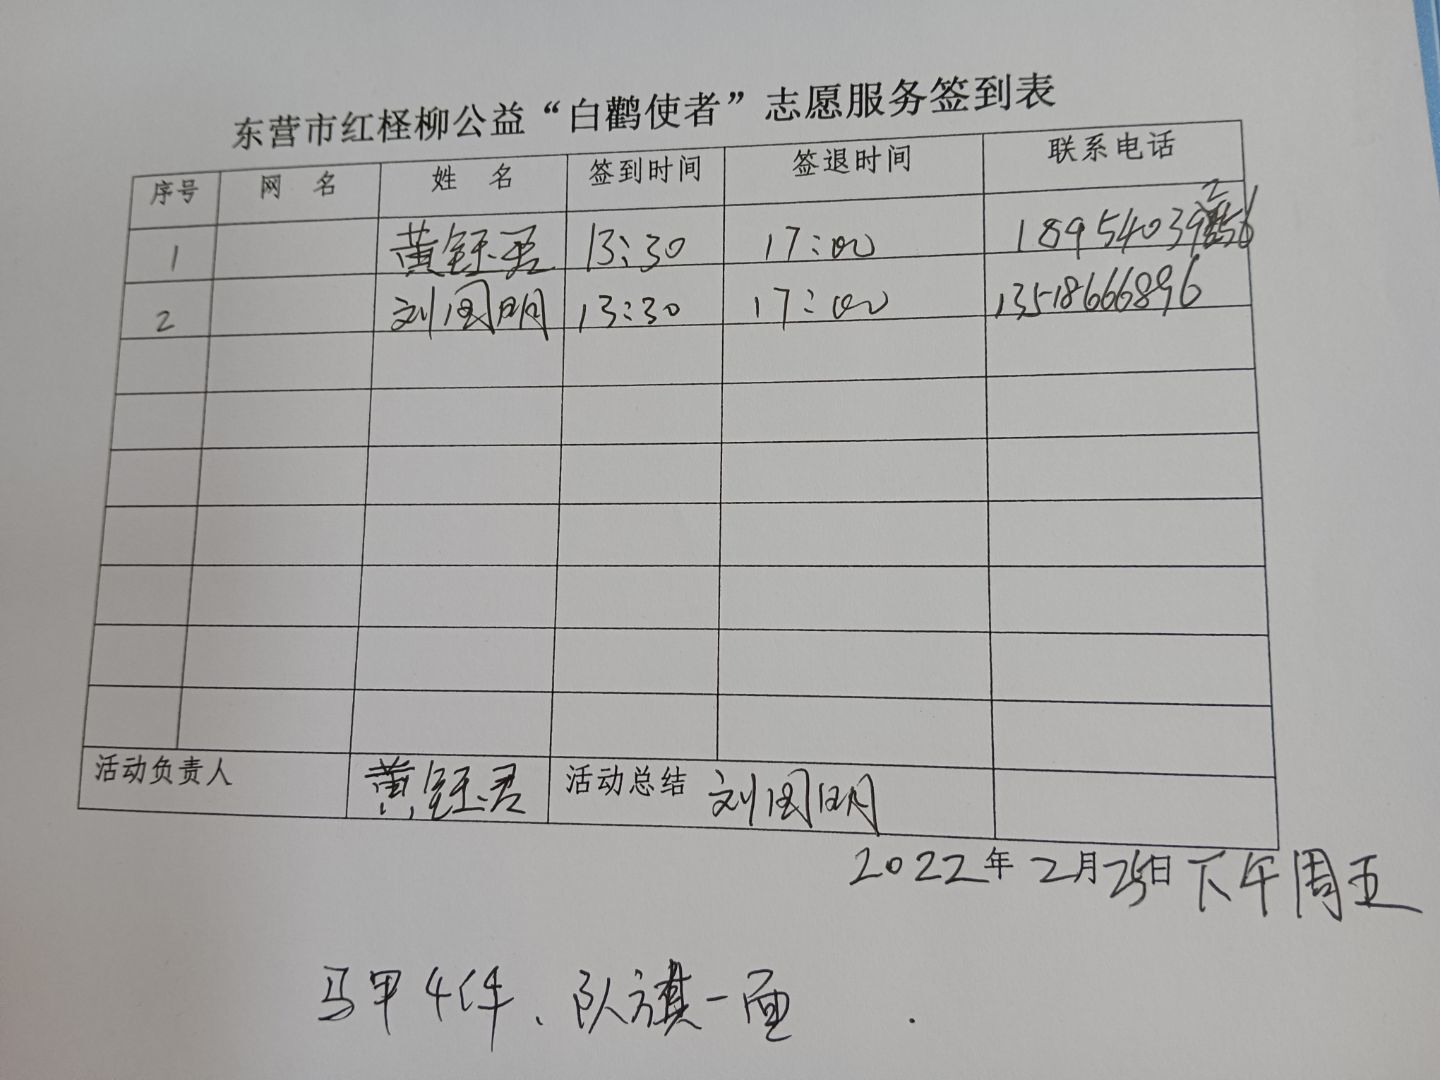 东营市红柽柳公益“白鹳使者”志愿服务签到表
序号 网 名 姓 名 签到时间 签退时间 联系电话
1 黄钰君 13:30 17:00
2 刘国明 13:30 17:00 13518666896
活动负责人 黄钰君 活动总结 刘国明
2022年2月25日下午周五
马甲4件、队旗一面.